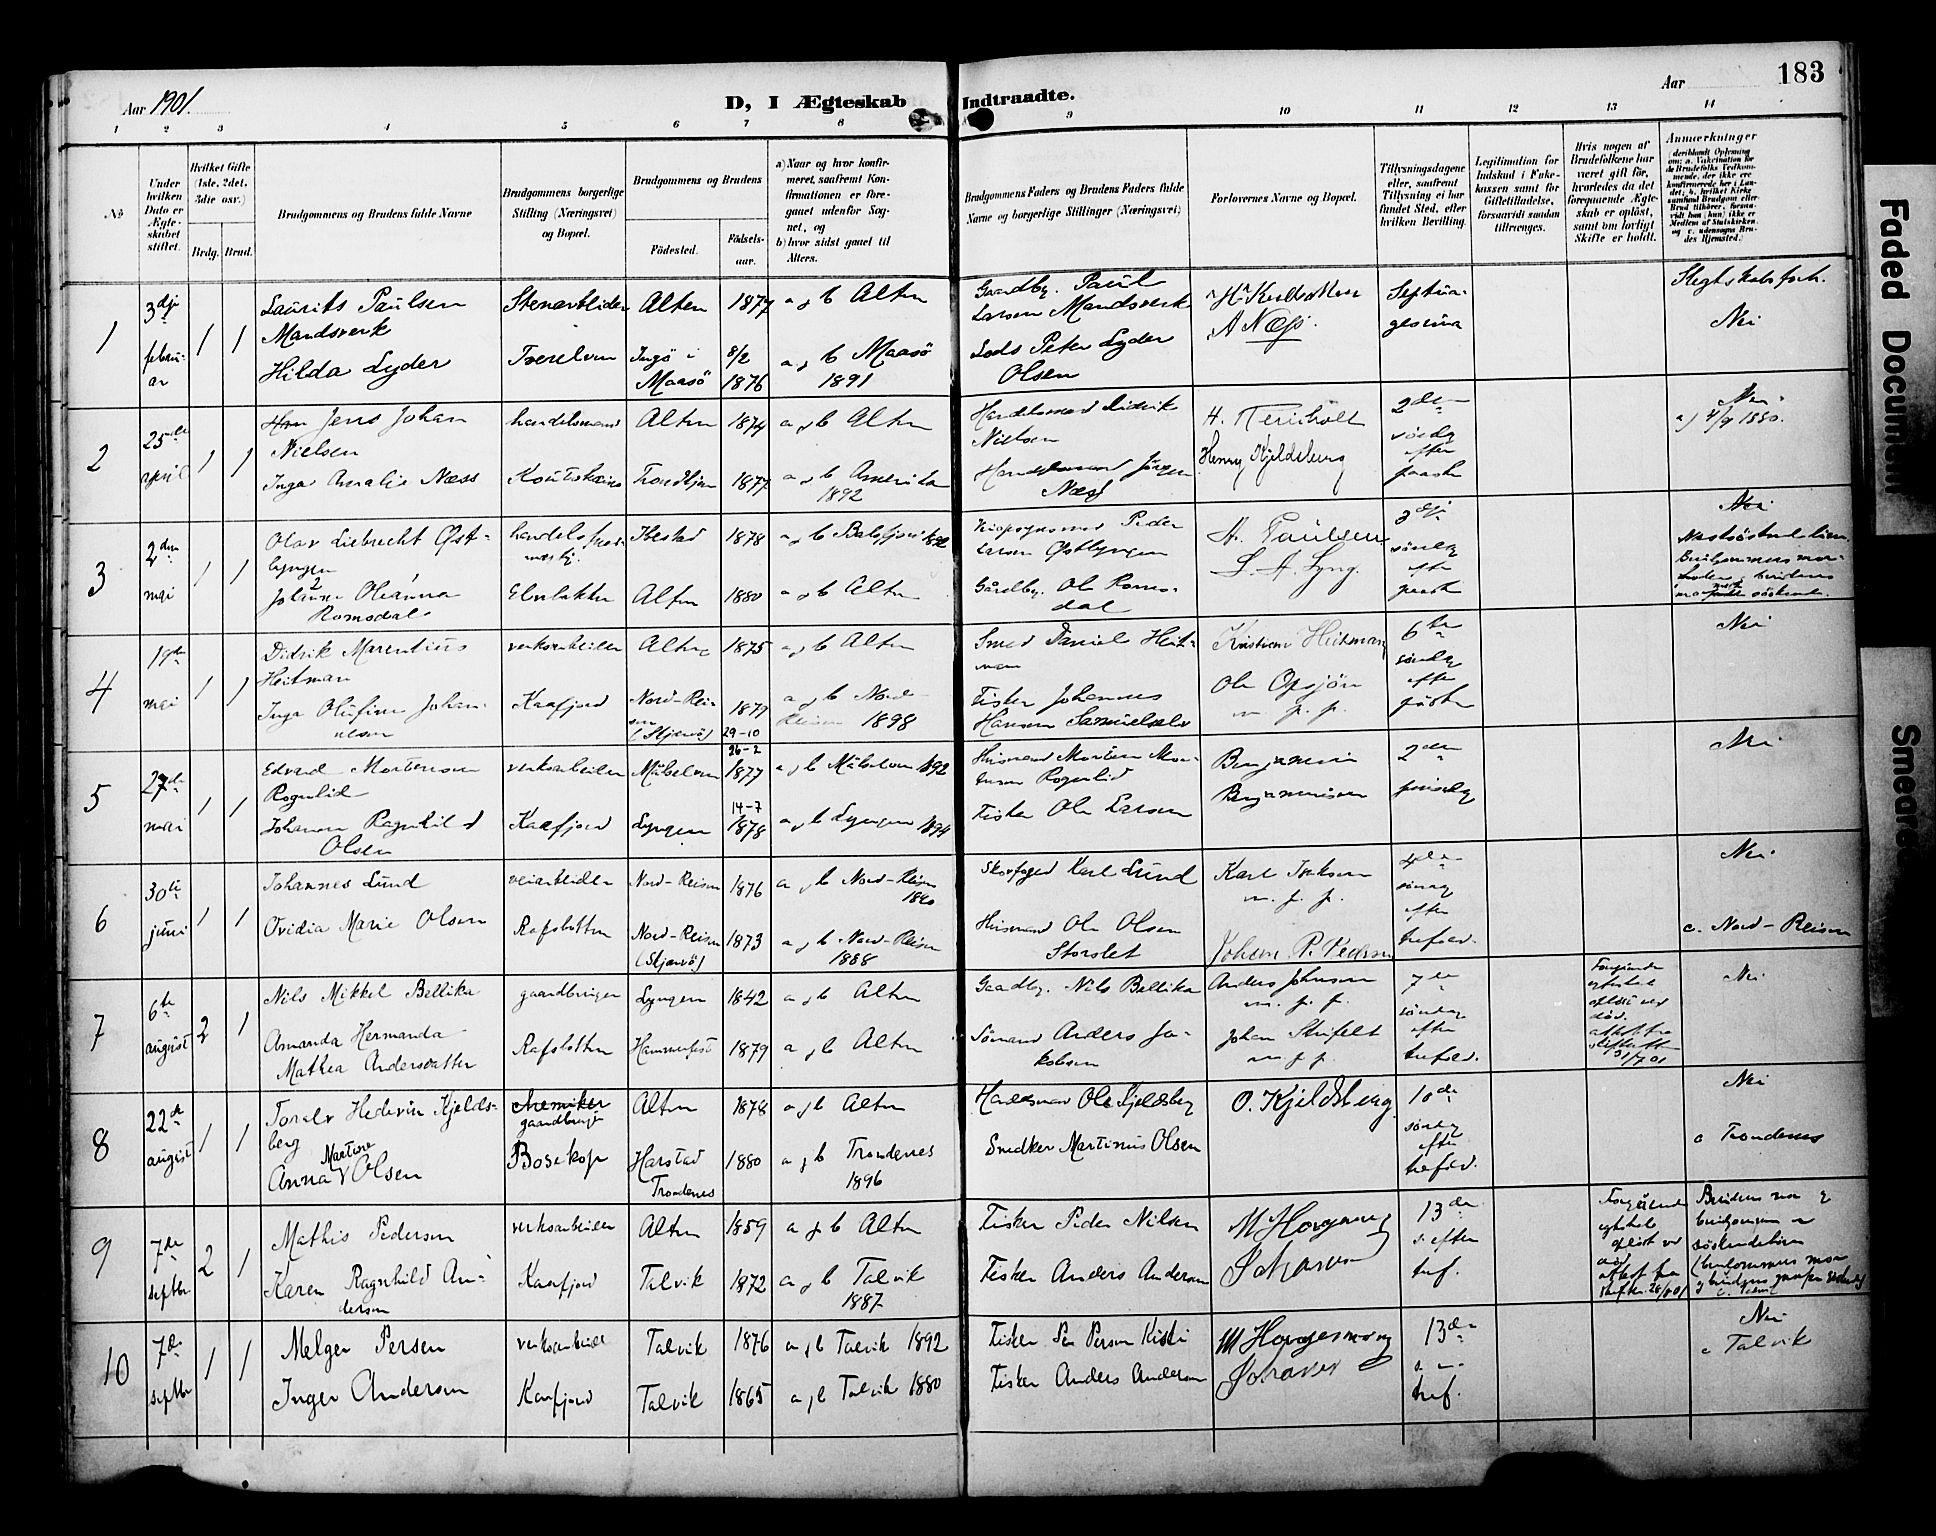 Aar 1901.
D, I Ægteskab Indtraadte.
Aar
183
1 2 3 4 5 6 7 8 9 10 11 12 13 14
No
Under hvilken Dato er Ægteskabet stiftet.
Hvilket Gifte (1ste, 2det, 3die osv.)
Brdg. Brud.
Brudgommens og Brudens fulde Navne
Brudgommens borgerlige Stilling (Næringsvei) og Bopæl.
Brudgommens og Brudens
Fødested.
Fødselsaar.
a) Naar og hvor konfirmeret, saafremt Konfirmationen er foregaaet udenfor Sognet, og
b) hvor sidst gaaet til Alters.
Brudgommens Faders og Brudens Faders fulde Navne og borgerlige Stillinger (Næringsvei)
Forlovernes Navne og Bopæl.
Tillysningsdagene eller, saafremt Tillysning ei har fundet Sted, efter hvilken Bevilling.
Legitimation for Indskud i Enkekassen samt for Giftetilladelse, forsaavidt saadan tiltrænges.
Hvis nogen af Brudefolkene har været gift før, hvorledes da det foregaaende Ægteskab er opløst, samt om lovligt Skifte er holdt.
Anmærkninger
1
3dje februar
1 1
Laurits Paulsen
Mandsverk
Hilda Lyder
Stenarbeider
Tverelven
Alten 1877 a og b Alten
Ingø i Maasø 8/2 1876 a og b Maasø 1891
Gaardbr. Paul
Larsen Mandsverk
Lods Peter Lyder
Olsen
A Næss.
Septuagesima
Nei
2
25de april
1 1
Jens Johan
Nielsen
Inga Amalie Næss
handelsmand
Koutokeino
Alten 1874 a og b Alten
Trondhjem 1877 a og b Amerika 1892
Handelsmand Didrik
Nielsen
Handelsmand Jørgen
Næss
Henry Kjeldsberg
2den søndag efter paaske
Nei
a) 4/9 1880.
3
2den mai
1 1
Olav Liebrecht Østlyngen
Johanna Oleanna
Romsdal
Elvebakken
Ibestad 1878 a og b Balsfjord 1892
Alten 1880 a og b Alten
Peder
Larsen Østlyngen
Gårdbr. Ole Romsdal
H. Paulsen
L. A. Lyng.
3dje søndag efter paaske
Nei
4
mai
1 1
Didrik Marentius
Heitman
Inga Olufine Johannesen
verksarbeider
Kaafjord
Alten 1875 a og b Alten
Nord-Reisen (Skjervø) 1879 29-10 a og b Nord-Reisen 1898
Smed Daniel Heitman
Fisker Johannes
Hansen Samuelselv
Kristian Heitman
Ole Opsjøn
m. p. p.
6te søndag efter påske
Nei
5
27de mai
1 1
Edvard Mortensen
Rognlid
Johanna Ragnhild
Olsen
verksarbeider
Kaafjord
Målselven 26-2 1877 a og b Målselven 1892
Lyngen 14-7 1878 a og b Lyngen 1894
Husmand Morten Mortensen Rognlid
Fisker Ole Larsen
Benjamin
Benjaminsen
2den pinsedag
Nei
6
30te juni
1 1
Johannes Lund
Ovidia Marie Olsen
veiarbeider
Rafsbotten
Nord-Reisen 1876 a og b Nord-Reisen
Nord-Reisen (Skjervø) 1873 a og b Nord-Reisen 1888
Skovfoged Karl Lund
Husmand Ole Olsen
Storslet
Karl Isaksen
m. p. p.
Johan P. Pedersen
4de søndag efter trefold.
Nei
c. Nord-Reisen
7
6te august
2 1
Nils Mikkel Bellika
Amanda Hermanda
Mathea Andersdatter
gaardbruger
Rafsbotten
Lyngen 1842 a og b Alten
Hammerfest 1879 a og b Alten
Gaardbr. Nils Bellika
Sømand Anders Jakobsen
Anders Johnsen
m. p. p.
Johan Strifelt
m. p. p.
7de søndag efter trefold.
Foregående egteskab opløst ved død.
31/7 01
Nei
8
22de august
1 1
Toralv Hedevin Kjeldsberg
Anna Martine Olsen
chemiker
gaardbruger
Bosekop
Alten 1878 a og b Alten
Harstad Trondenes 1880 a og b Trondenes 1896
Handelsmand Ole Kjeldsberg
Snedker Martinus Olsen
O. Kjeldsberg
10de søndag efter trefold.
Nei
c Trondenes
9
7de septbr
2 1
Mathis Pedersen
Karen Ragnhild Andersen
verksarbeider
Kaafjord
Alten 1859 a og b Alten
Talvik 1872 a og b Talvik 1887
Fisker Peder Nilsen
Fisker Anders Andersen
13de s. efter tref.
Foregående egteskab opløst ved død
10
7de septbr
1 1
Melger Persen
Inger Andersen
verksarbeider
Kaafjord
Talvik 1876 a og b Talvik 1892
Talvik 1865 a og b Talvik 1880
Fisker Per Persen Kisti
Fisker Anders Andersen
13de s. tref.
Nei
c Talvik
Faded Document
Smeared